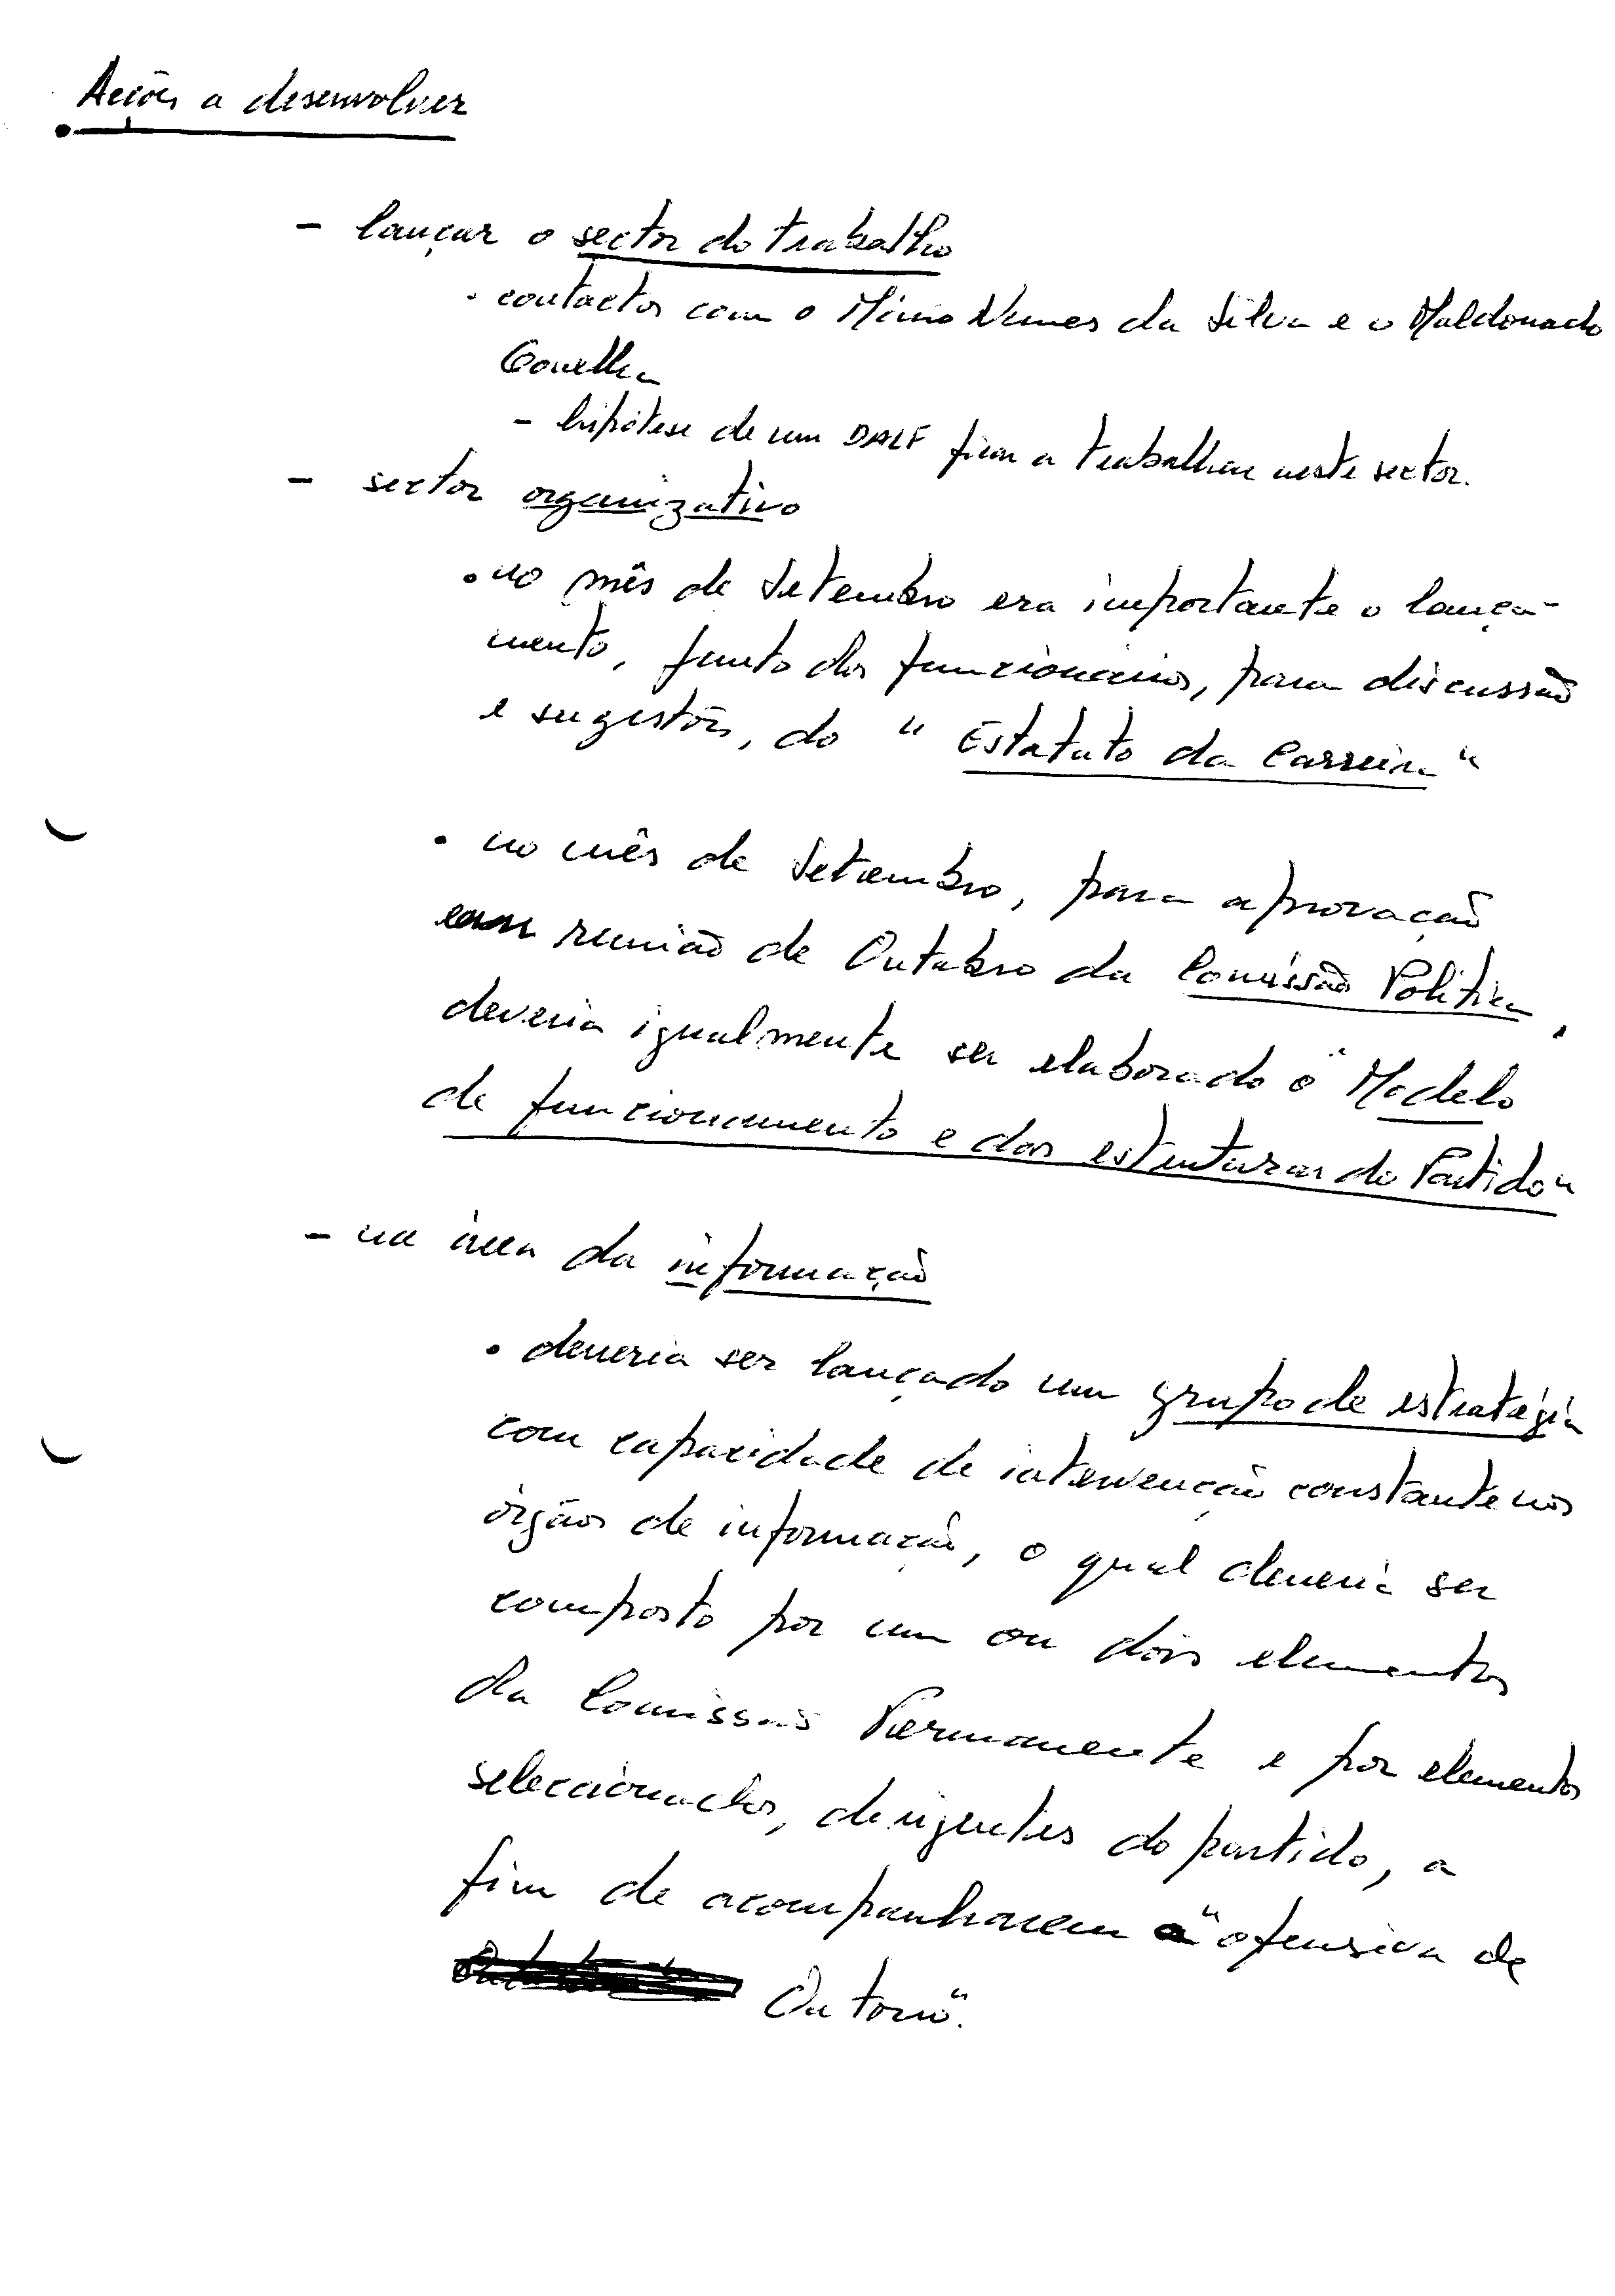 Acções a desenvolver
- lançar o sector do trabalho
. contactos com o Mário Nunes da Silva e o Maldonado
Gonelha
- hipótese de um DALF ficar a trabalhar neste sector.
- sector organizativo
. no mês de Setembro era importante o lança-
mento, junto dos funcionários, para discussão
e sugestões, do " Estatuto da Carreira "
. no mês de Setembro, para aprovação
em reunião de Outubro da Comissão Política,
deveria igualmente ser elaborado o " Modelo
de funcionamento e das estruturas do Partido "
- na área da informação
. deveria ser lançado um grupo de estratégia
com capacidade de intervenção constante nos
órgãos de informação, o qual deveria ser
composto por um ou dois elementos
da Comissão Permanente e por elementos
seleccionados, dirigentes do partido, a
fim de acompanharem a "ofensiva de
Outono".